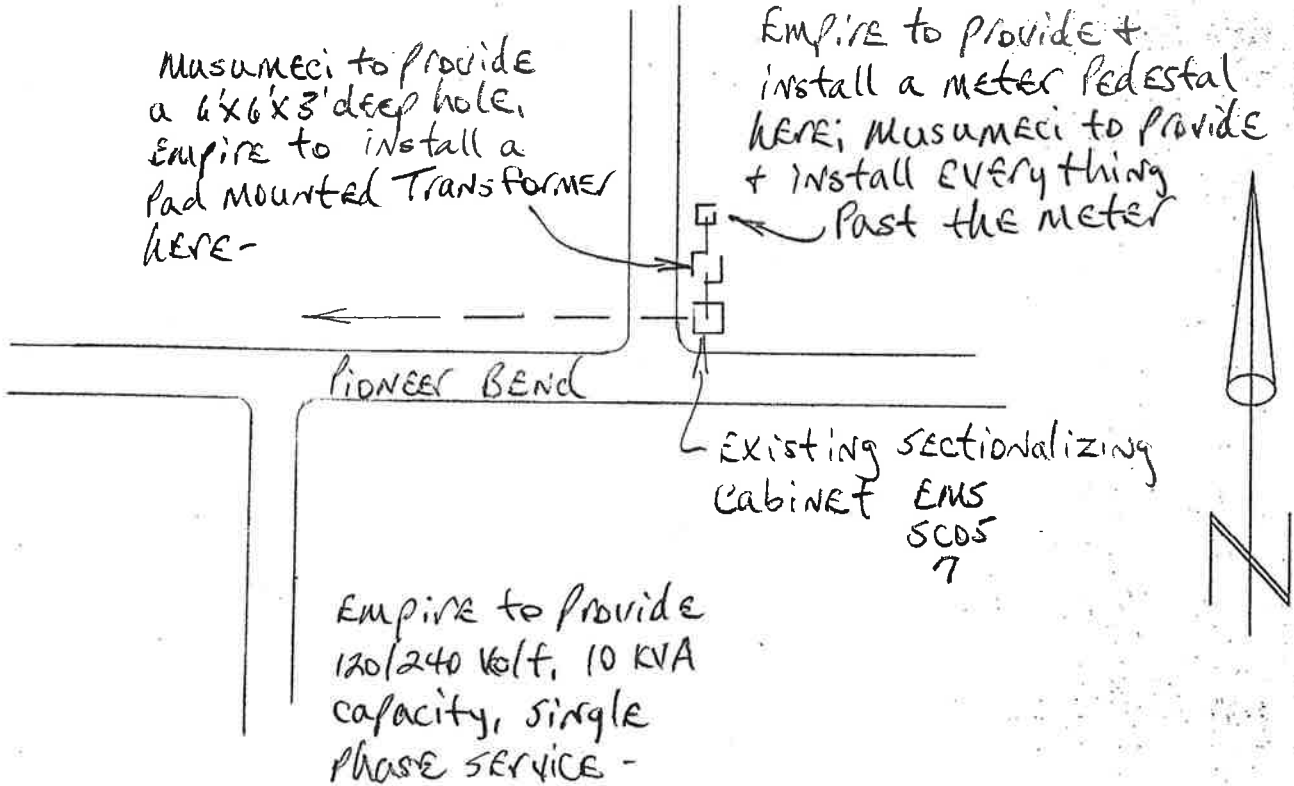 Musumeci to provide
a 6'x6'x3' deep hole,
Empire to install a
Pad Mounted Transformer
here-
Empire to provide +
install a meter Pedestal
here; Musumeci to provide
+ install everything
Past the meter
Pioneer Bend
Existing Sectionalizing
Cabinet EMS
SC05
7
Empire to Provide
120/240 Volt, 10 KVA
capacity, single
phase service -
N